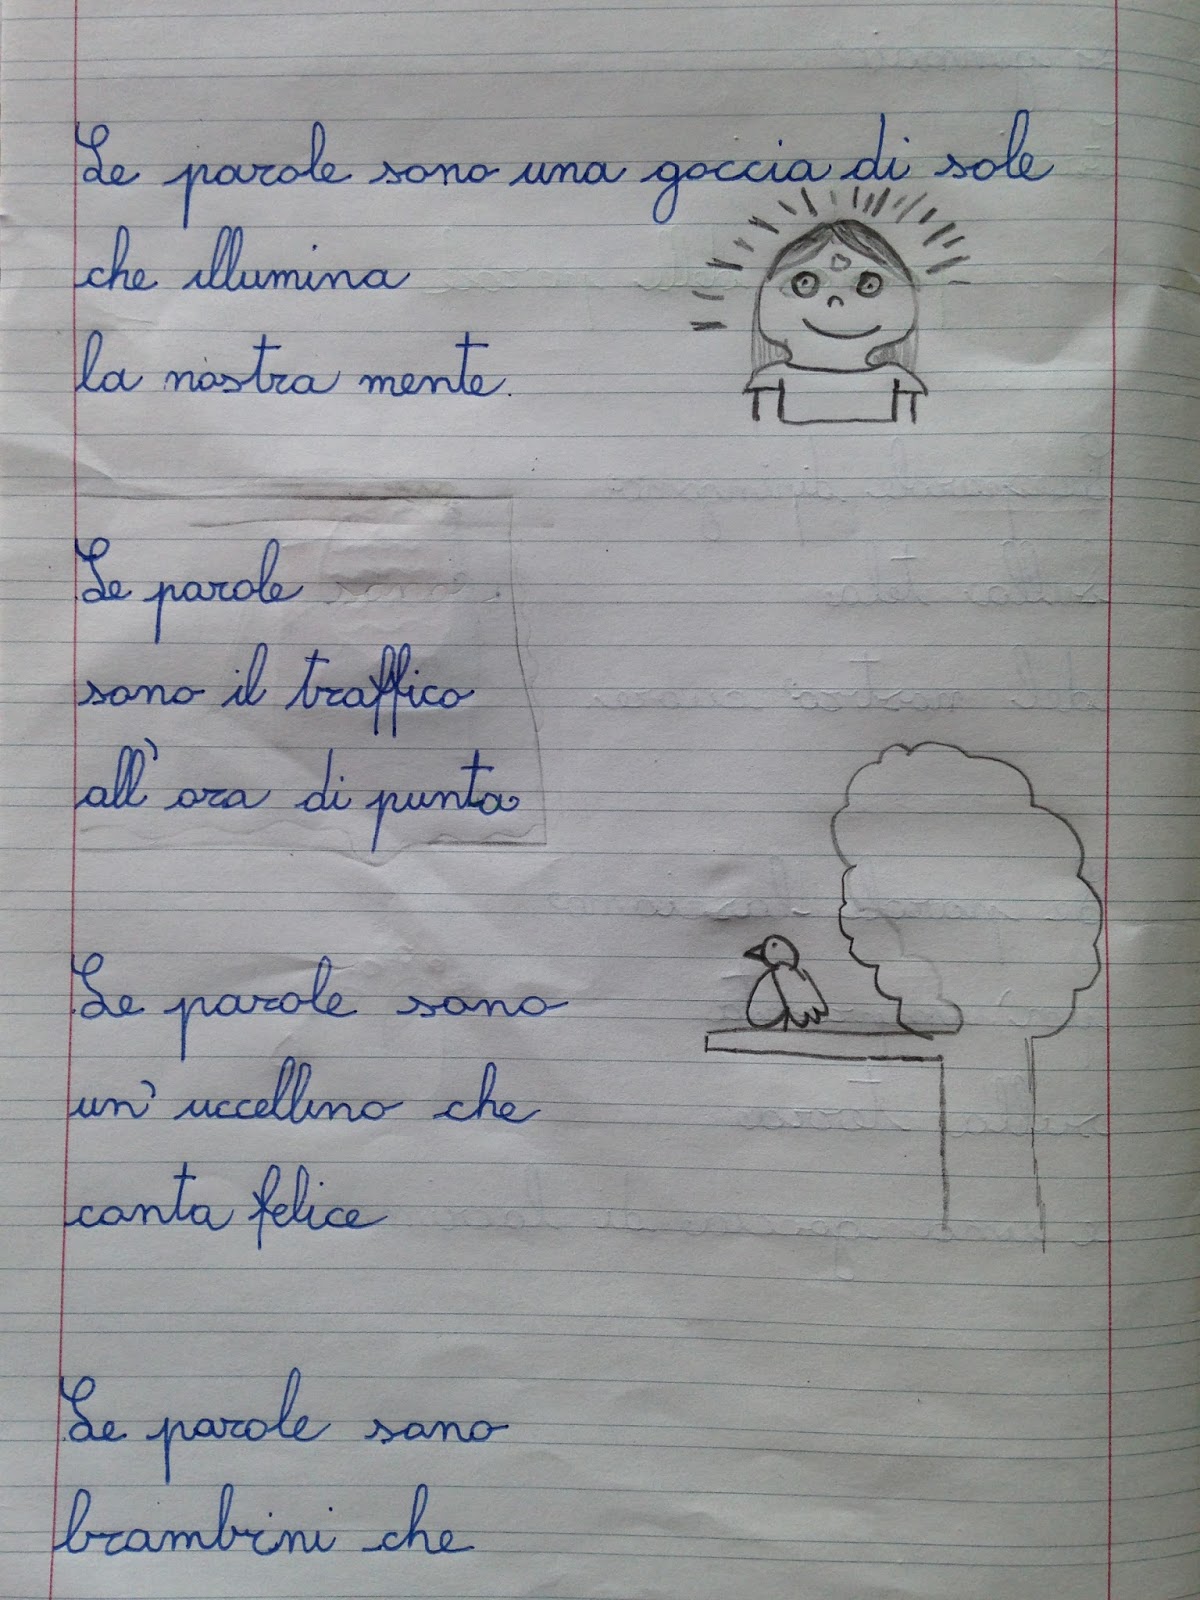 Le parole sono una goccia di sole
che illumina
la nostra mente.
Le parole
sono il traffico
all'ora di punta
Le parole sono
un'uccellino che
canta felice
Le parole sono
brambini che